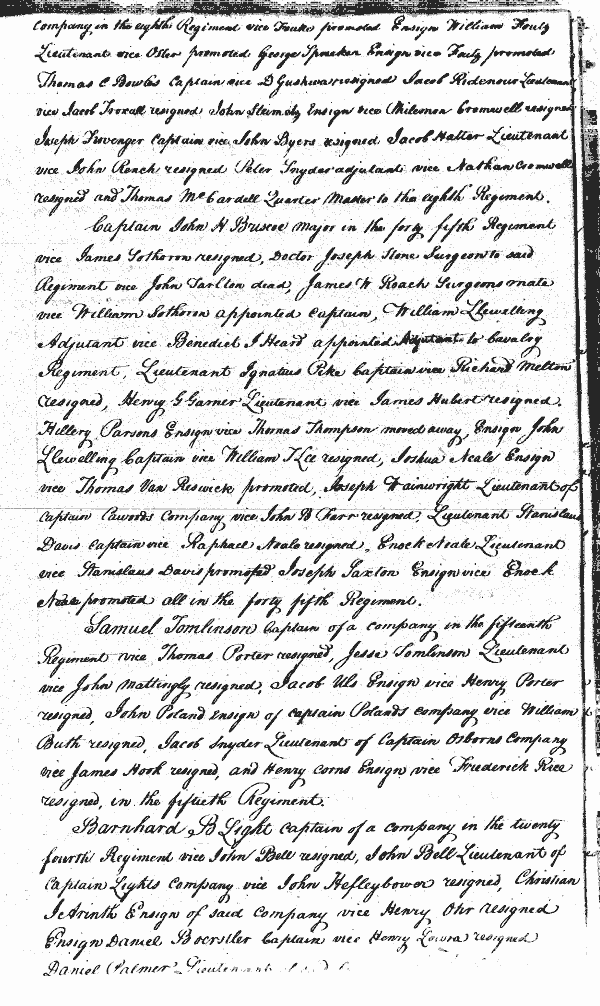 Company, in the eighth Regiment vice Fouke promoted Ensign William Fouty
Lieutenant vice Oster promoted George Sprecken Ensign vice Fouty promoted
Thomas C Bowles Captain vice D Gushwa resigned Jacob Ridenour Lieutenant
vice Jacob Troxall resigned John Ensign vice Philemon Cromwell resigned
Joseph Captain vice John Byers resigned Jacob Halter Lieutenant
vice John Roach resigned Peter Snyder adjutant vice Nathan Cromwell
resigned and Thomas McCardell Quarter Master to the eighth Regiment.
Captain John H Briscoe Major in the forty fifth Regiment
vice James Sothoron resigned, Doctor Joseph Stone Surgeon to said
Regiment vice John Tarlton dead, James W Roach Surgeons mate
vice William Sothoron appointed Captain, William Llewelling
Adjutant vice Benedict I Heard appointed Adjutant to Cavalry
Regiment, Lieutenant Ignatius Pike Captain vice Richard Melton
resigned, Henry G Garner Lieutenant vice James Hubert resigned.
Hillery Parsons Ensign vice Thomas Thompson moved away, Ensign John
Llewelling Captain vice William T Lee resigned, Joshua Neale Ensign
vice Thomas Van Reswick promoted, Joseph Wainwright Lieutenant of
Captain Cawoods Company vice John B Carr resigned, Lieutenant Stanislaus
Davis Captain vice Raphael Neale resigned, Enock Neale Lieutenant
vice Stanislaus Davis promoted Joseph Saxton Ensign vice Enock
Neale promoted all in the forty fifth Regiment.
Samuel Tomlinson Captain of a company in the fifteenth
Regiment vice Thomas Porter resigned, Jesse Tomlinson Lieutenant
vice John Mattingly resigned, Jacob Uls Ensign vice Henry Porter
resigned, John Poland Ensign of Captain Polands company vice William
Buth resigned, Jacob Snyder Lieutenant of Captain Osborns Company
vice James Hook resigned, and Henry Corns Ensign vice Frederick Rice
resigned, in the fiftieth Regiment.
Barnhard B Light Captain of a company in the twenty
fourth Regiment vice John Bell resigned, John Bell Lieutenant of
Captain Lights company vice John Hefleybower resigned, Christian
Ensign of said company vice Henry Ohr resigned
Ensign Daniel Boerstler Captain vice Henry Lowra resigned
Daniel Palmer Lieutenant